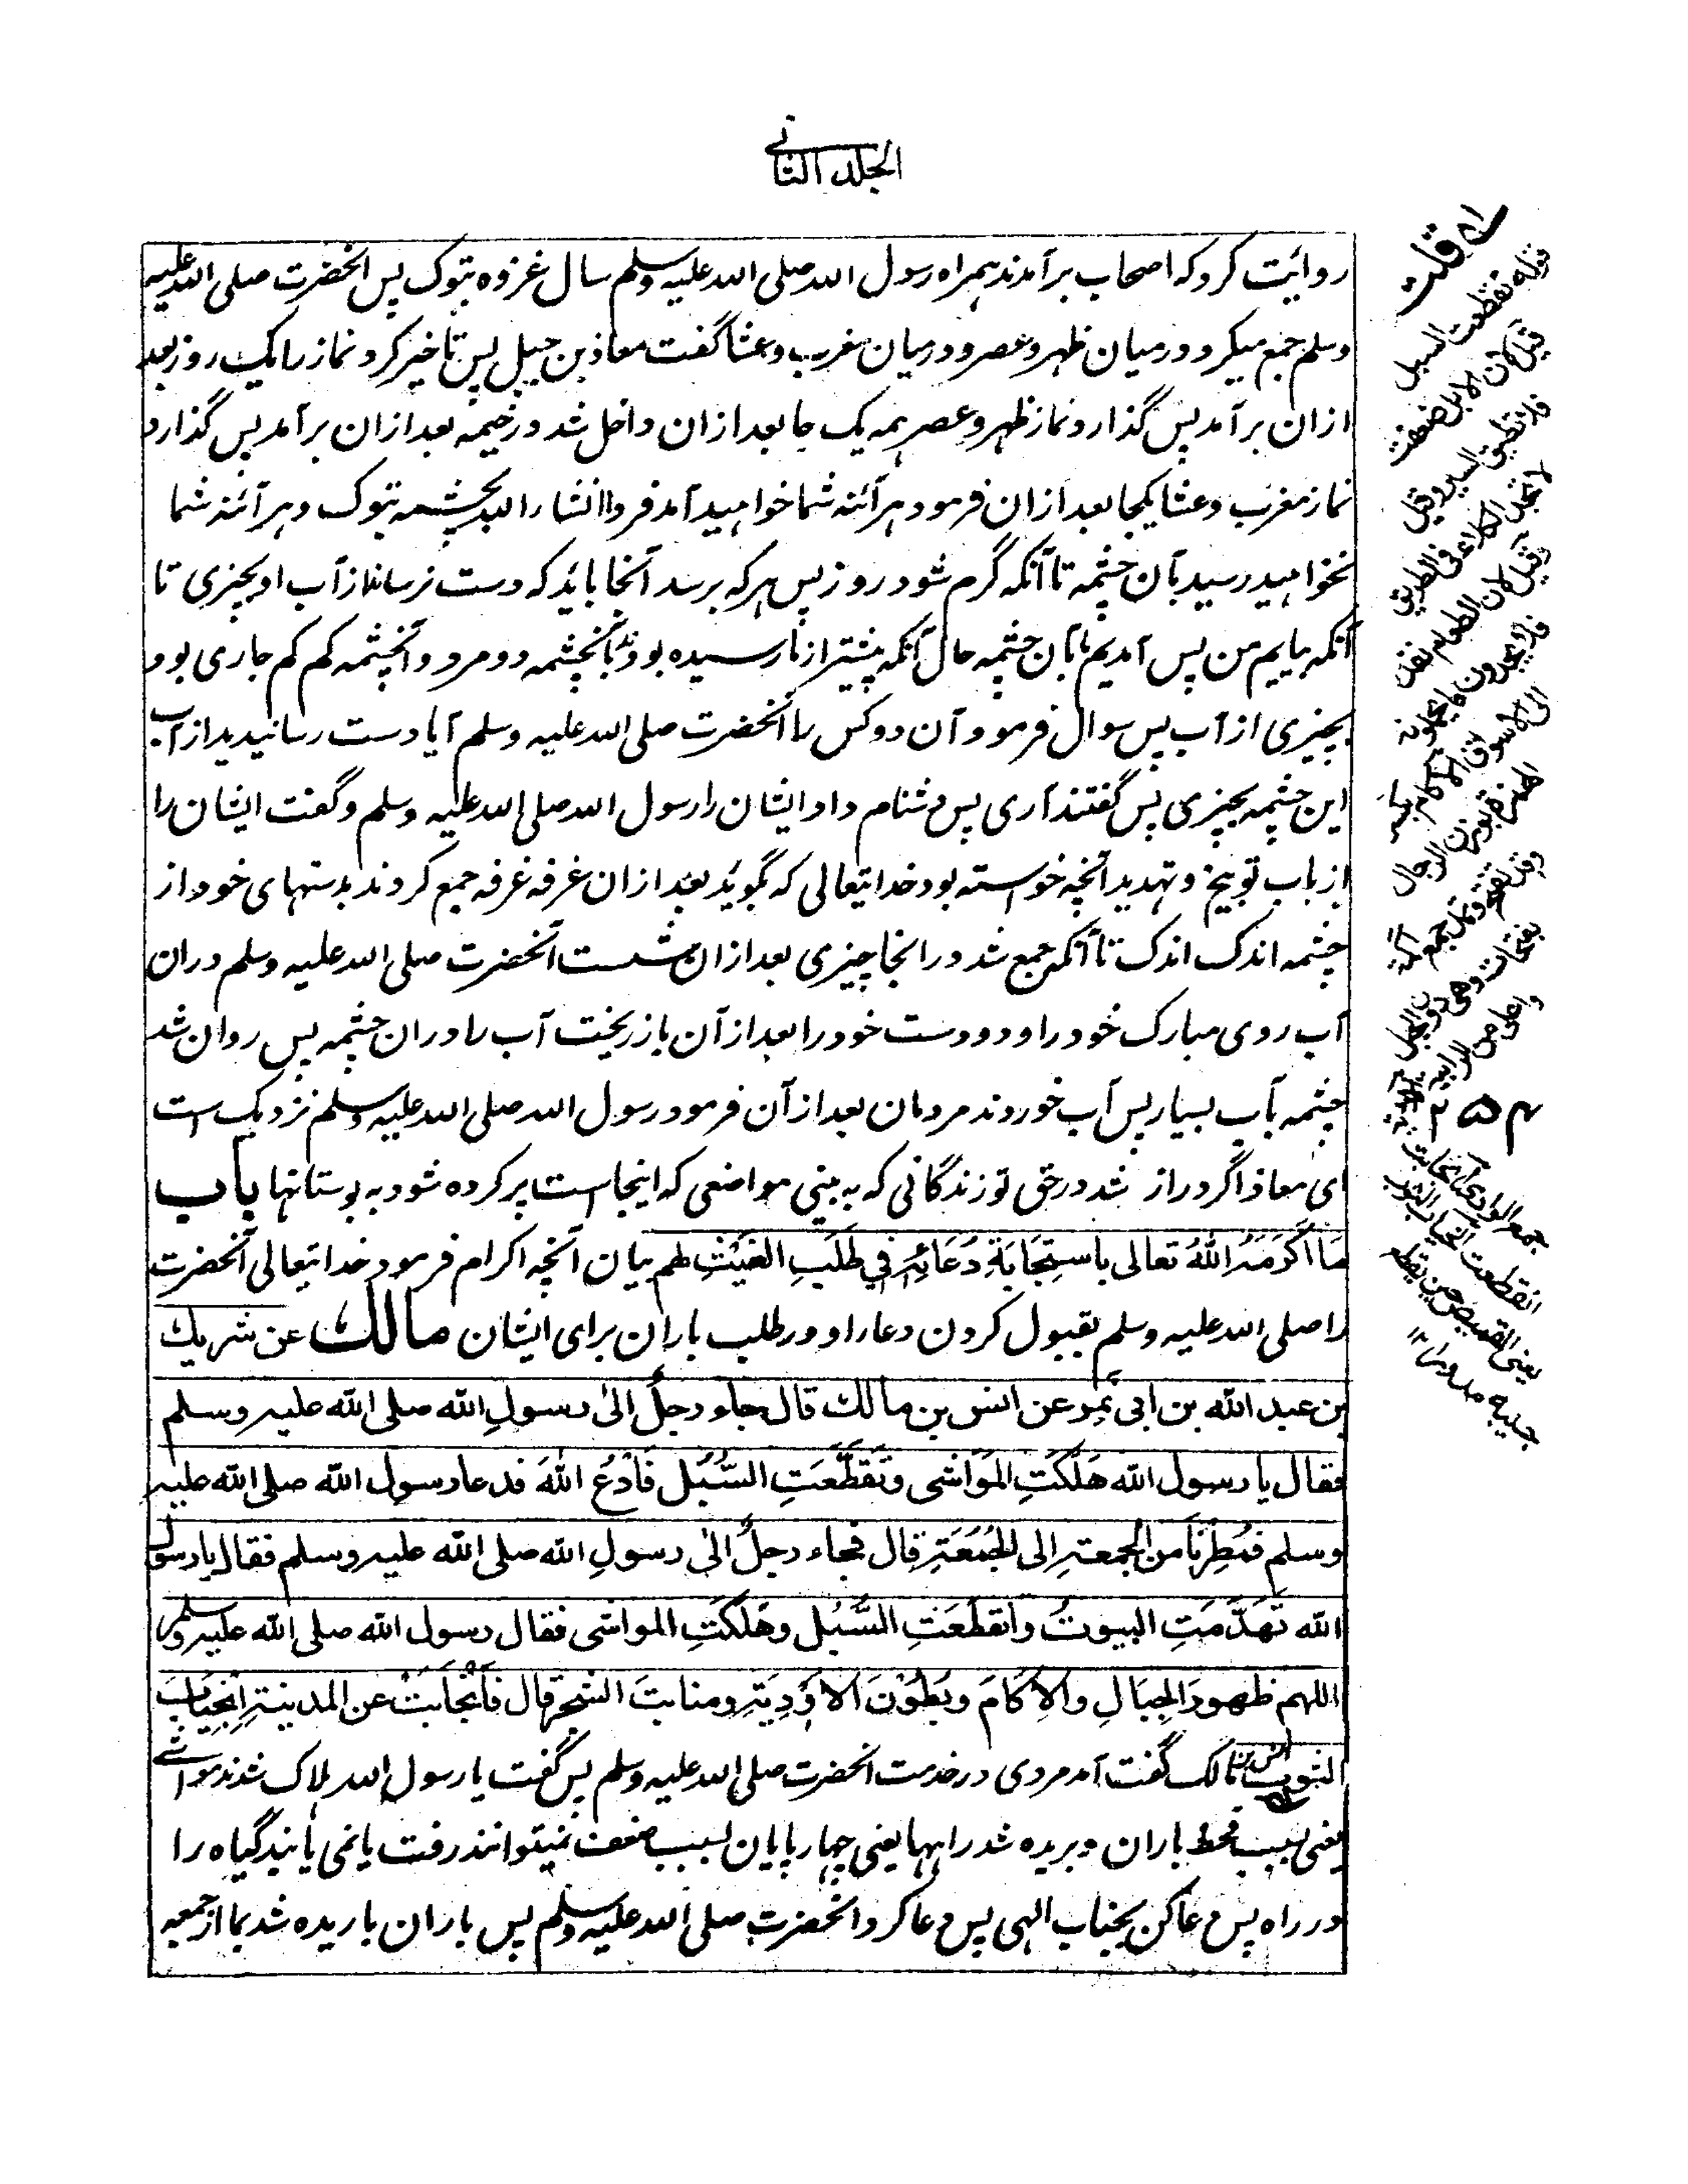 الجلد الثانی
روایت کرد که اصحاب برآمدند همراه رسول الله صلی الله علیه وسلم سال غزوه تبوک پس آنحضرت صلی الله علیه
وسلم جمع میکرد درمیان ظهر وعصر ودرمیان مغرب وعشا گفت معاذ بن جبل پس تاخیر کرد نماز را یک روز بعد
ازان برآمد پس گذارد نماز ظهر وعصر همه یک جا بعد ازان داخل شد در خیمه بعد ازان برآمد پس گذارد
نماز مغرب وعشا یکجا بعد ازان فرمود هر آئنه شما خواهید آمد فردا انشاء الله بچشمه تبوک وهر آئنه شما
نخواهید رسید بآن چشمه تا آنکه گرم شود روز پس هر که برسد آنجا باید که دست نرساند از آب او بچیزی تا
آنکه بیایم من پس آمدیم ما بآن چشمه حال آنکه پیشتر از ما رسیده بودند بآنچشمه دو مرد و آنچشمه کم کم جاری بود
بچیزی از آب پس سوال فرمود آن دو کس را آنحضرت صلی الله علیه وسلم آیا دست رسانیدید از آب
این چشمه بچیزی پس گفتند آری پس دشنام داد ایشان را رسول الله صلی الله علیه وسلم وگفت ایشان را
از باب توبیخ وتهدید آنچه خواسته بود خدایتعالی که بگوید بعد ازان غرفه غرفه جمع کردند بدستهای خود از
چشمه اندک اندک تا آنکه جمع شد در انجا چیزی بعد ازان بشست آنحضرت صلی الله علیه وسلم دران
آب روی مبارک خود را و دو دست خود را بعد از آن باز ریخت آب را دران چشمه پس روان شد
چشمه بآب بسیار پس آب خوردند مردمان بعد از آن فرمود رسول الله صلی الله علیه وسلم نزدیک است
ای معاذ اگر دراز شد در حق تو زندگانی که به بینی مواضعی که اینجا است پر کرده شود به بوستانها باب
مَا اَكرَمَهُ اللهُ تعالى باستِجَابَةِ دُعَائِهٖ فِي طَلَبِ الغَيْثِ لهم بیان آنچه اکرام فرمود خدایتعالی آنحضرت
را صلی الله علیه وسلم بقبول کردن دعاء او در طلب باران برای ایشان مالك عن شريك
بن عبد الله بن ابى نَمِر عن انس بن مالك قال جاء رجلٌ الىٰ رسولِ الله صلى الله عليه وسلم
فقال يا رسول الله هَلَكَتِ المَوَاشى وتَقَطَّعَتِ السُّبُل فَادْعُ اللهَ فدعا رسول الله صلى الله عليه
وسلم فمُطِرْنَا من الجمعة الى الجُمُعَةِ قال فجاء رجلٌ الىٰ رسولِ الله صلى الله عليه وسلم فقال يا رسول
الله تَهَدَّمَتِ البيوتُ وانقطَعَتِ السُّبُل وهَلَكَتِ المواشى فقال رسول الله صلى الله عليه وسلم
اللهم ظهورَ الجِبَالِ والاٰكامَ وبُطُوْنَ الاَوْدِيَةِ ومنابتَ الشجر قال فَانْجَابَتْ عن المدينةِ اِنْجِيَابَ
الثوب انس بن مالک گفت آمد مردی در خدمت آنحضرت صلی الله علیه وسلم پس گفت یا رسول الله هلاک شدند مواشی
یعنی بسبب قحط باران وبریده شد راهها یعنی چهارپایان بسبب ضعف نمیتوانند رفت یا نمی یابند گیاه را
در راه پس دعا کن بجناب الهی پس دعا کرد آنحضرت صلی الله علیه وسلم پس باران باریده شدیم ما از جمعه
قلت
قوله تقطعت السبيل
قيل لان الابل ضعفت
السير وقيل
الكلاء فى الطريق
وقيل لان الطعام نفذ
فلا يجدون ما يحملونه
الى الاسواق